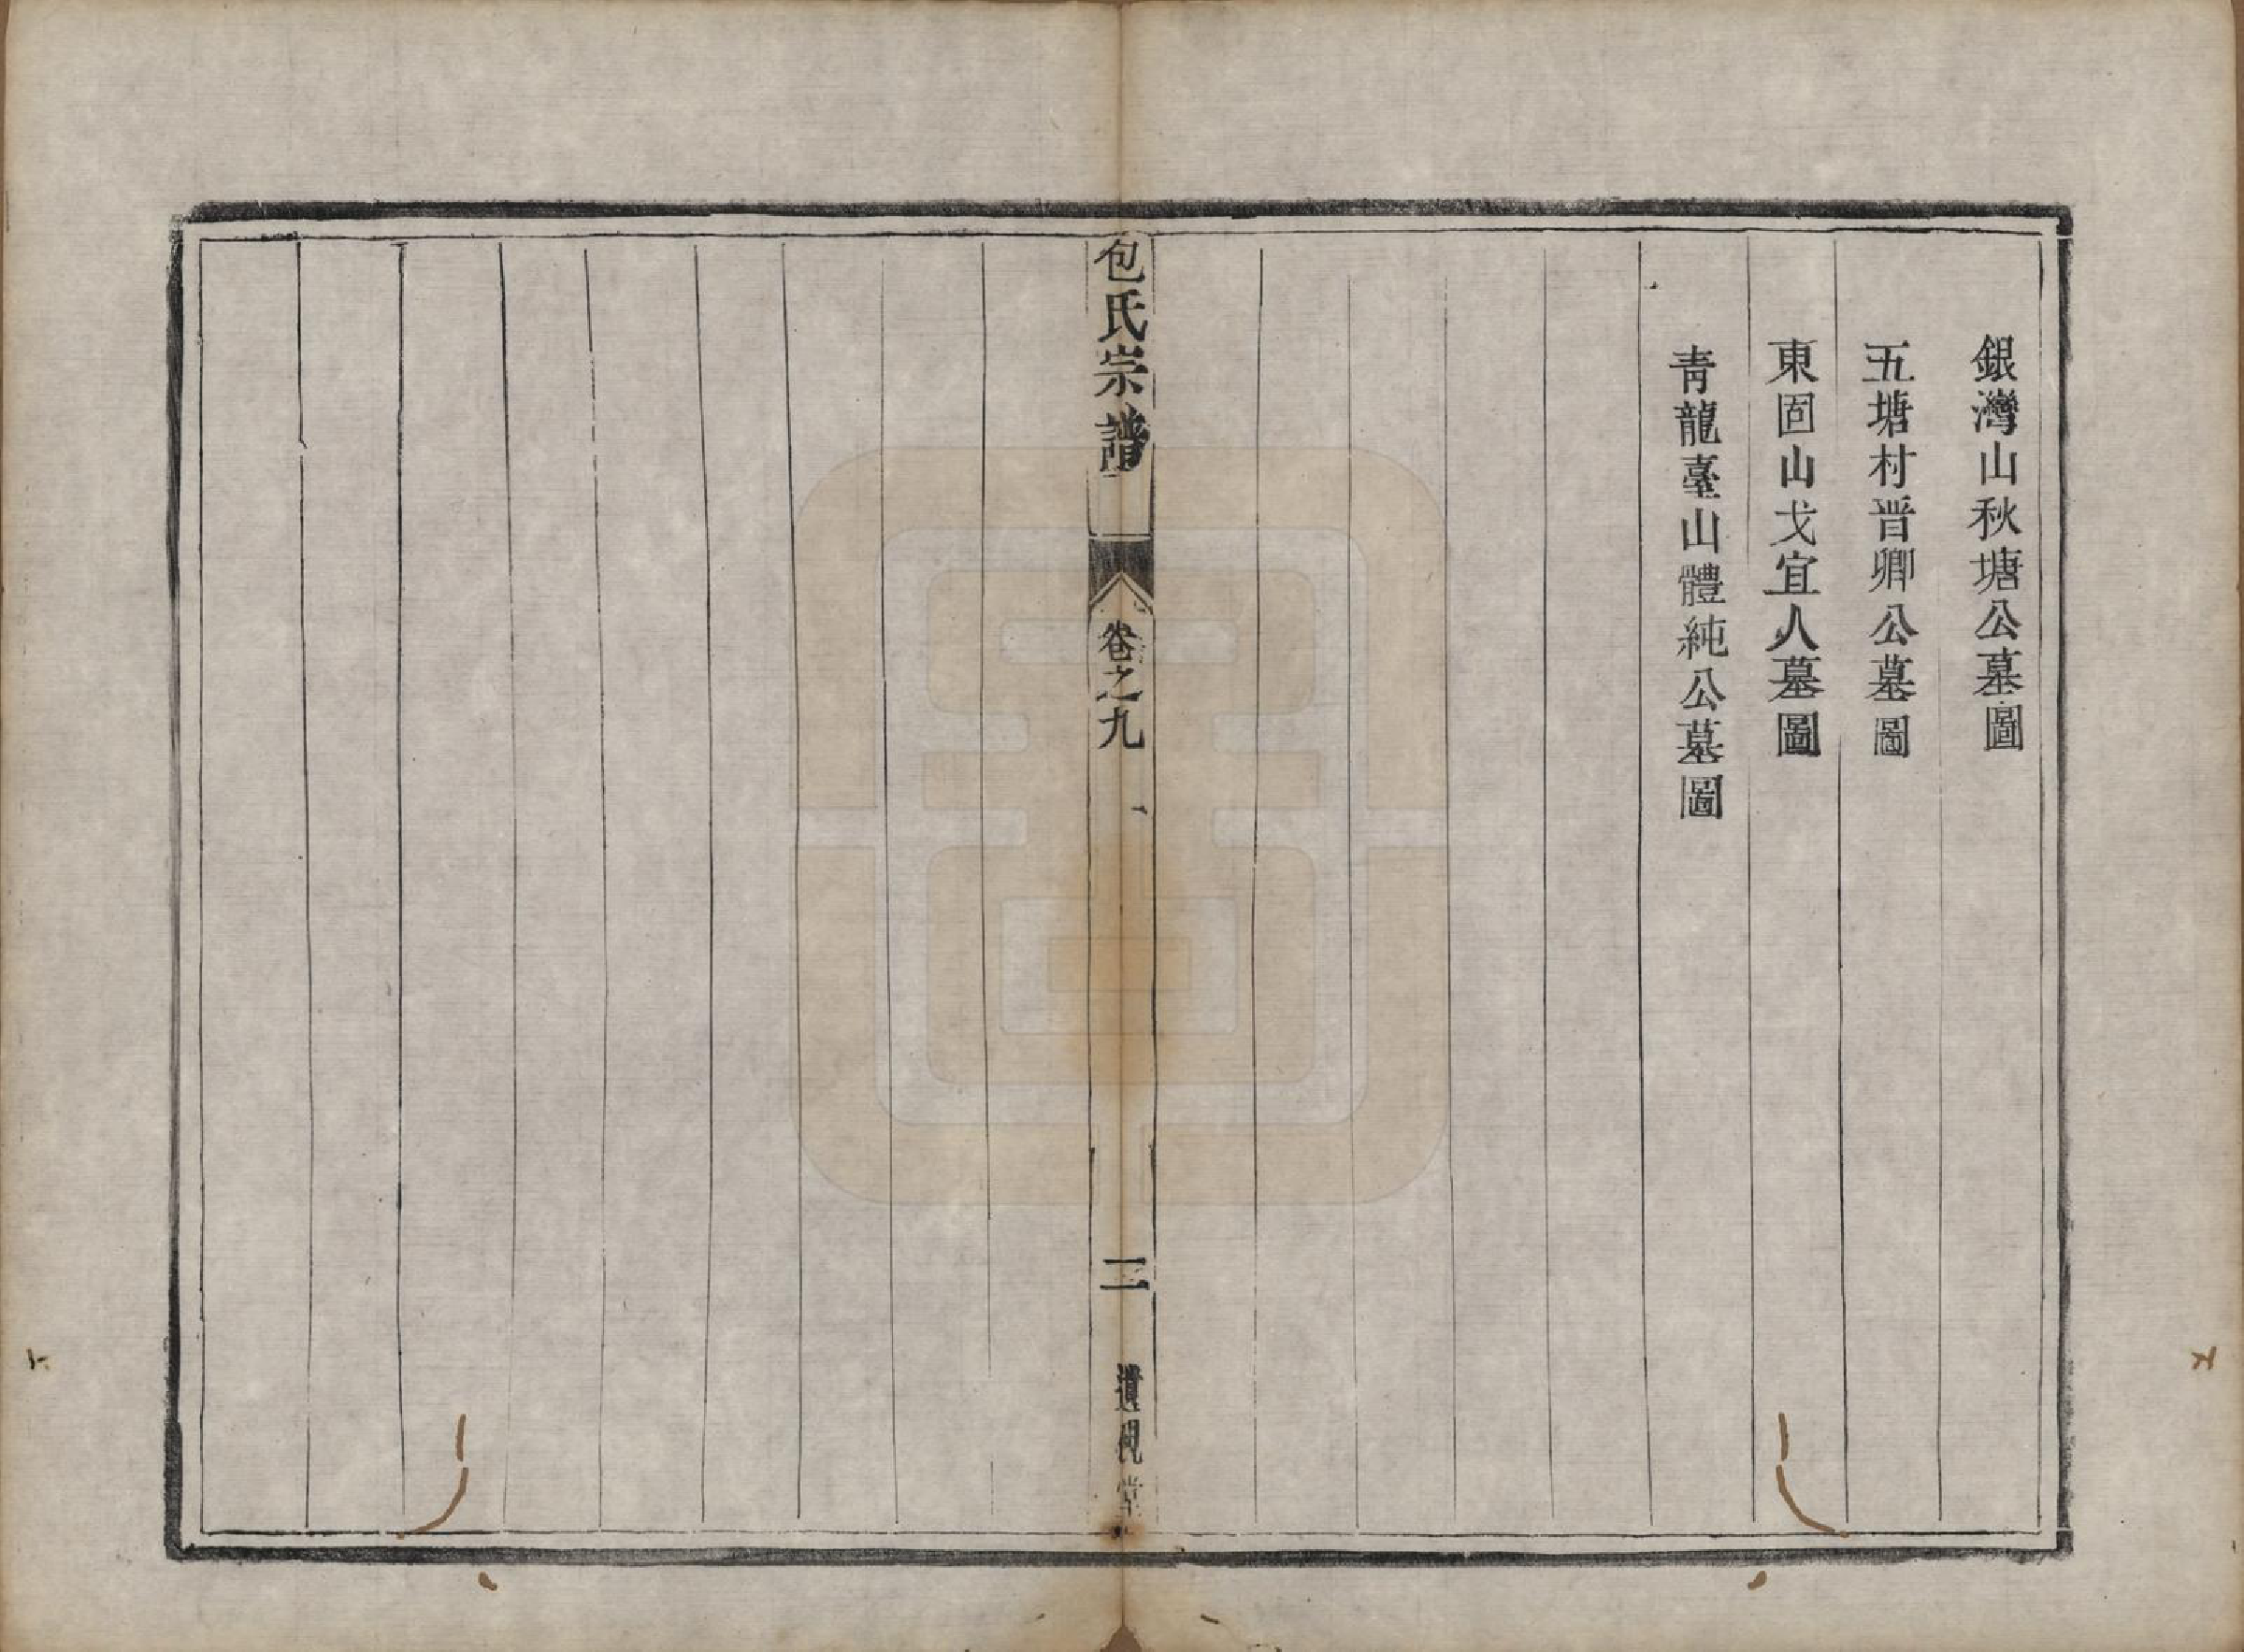 銀灣山秋塘公墓圖
五塘村晋卿公墓圖
東固山戈宜人墓圖
青龍臺山體純公墓圖
包氏宗譜
卷之九
二
遺硯堂